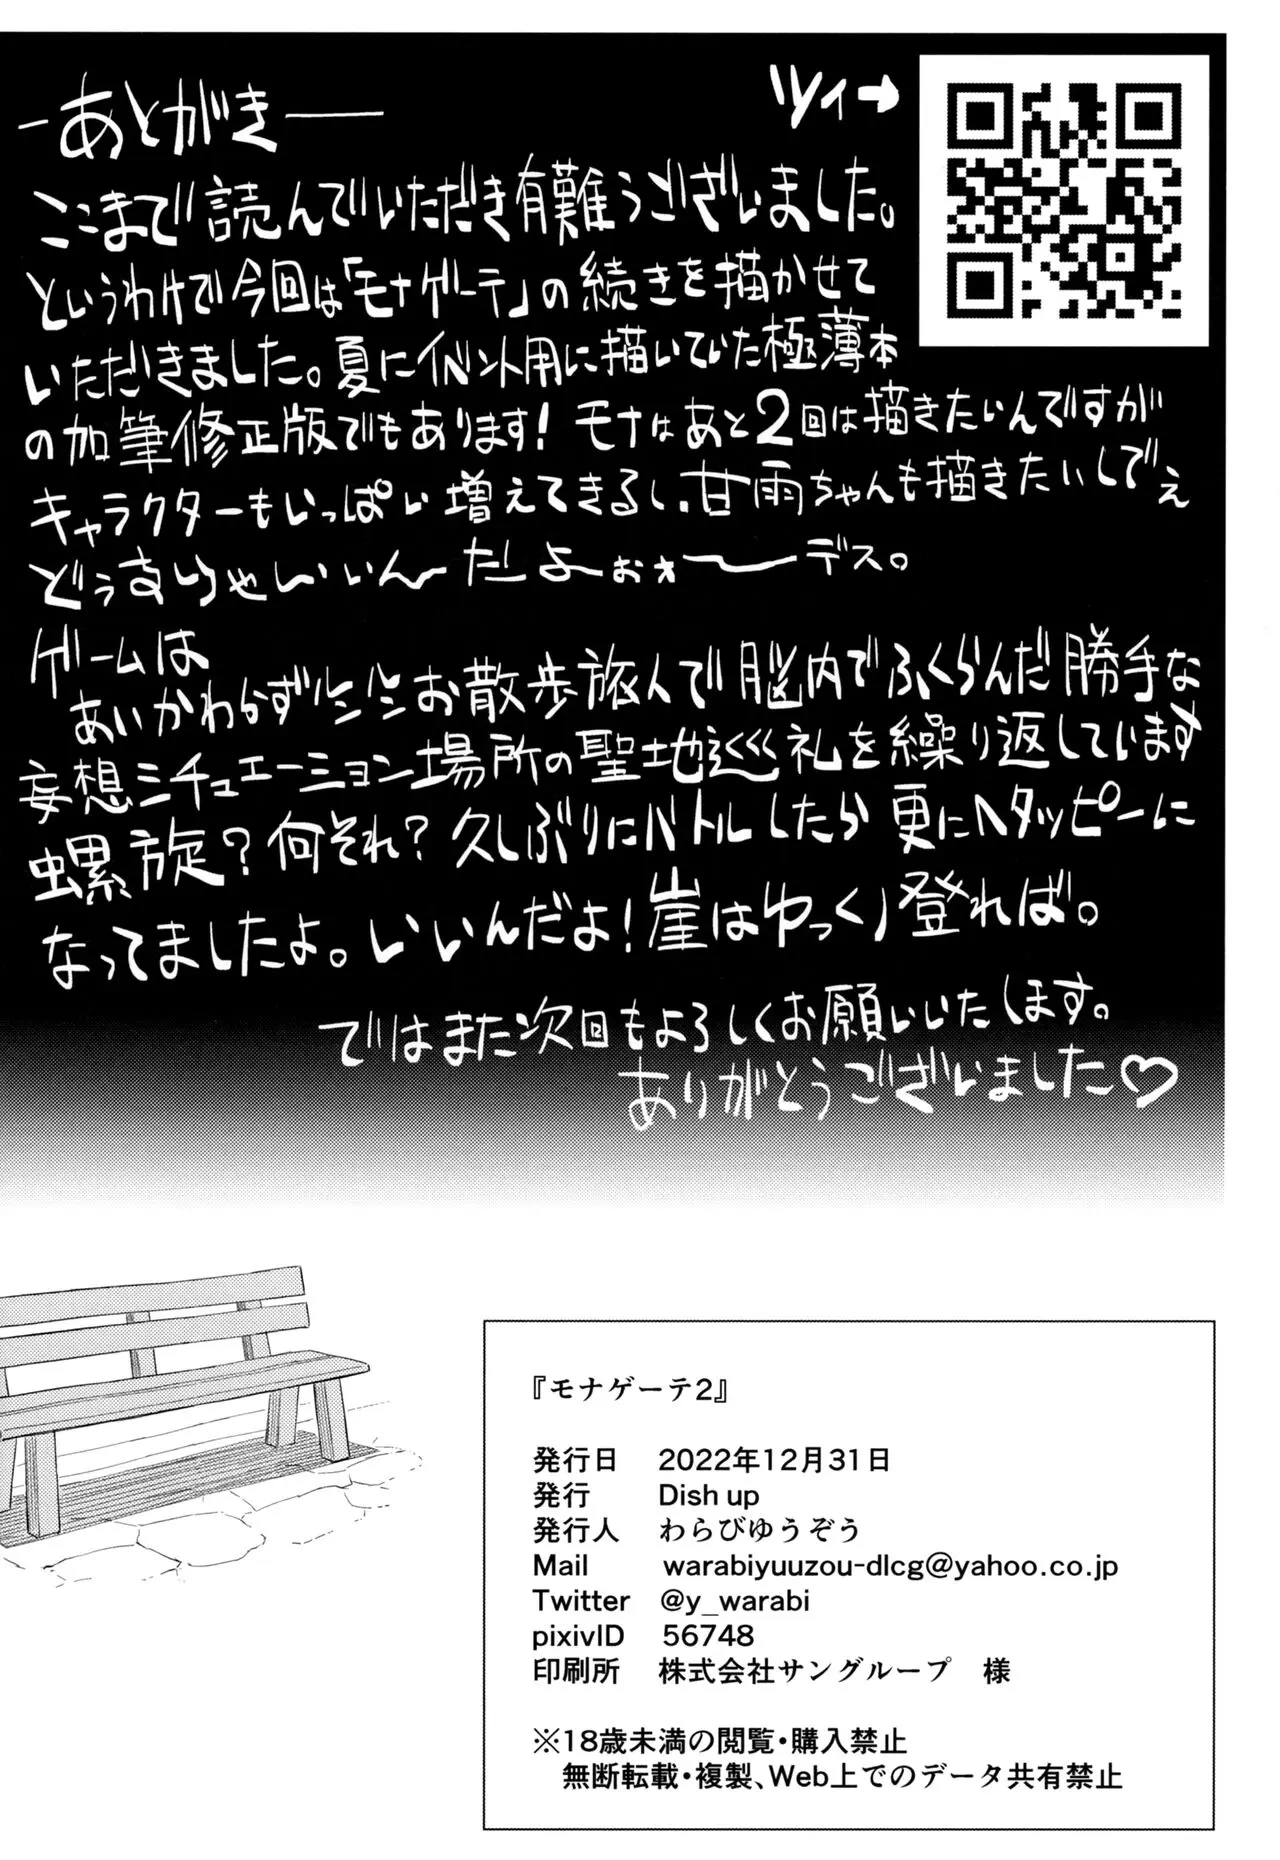 ーあとがき――
ツイ→
ここまで読んでいただき有難うございました。
というわけで今回は「モナゲーテ」の続きを描かせて
いただきました。夏にイベント用に描いていた極薄本
の加筆修正版でもあります！モナはあと2回は描きたいんですが
キャラクターもいっぱい増えてきるし、甘雨ちゃんも描きたいしでぇ
どうすりゃいいんだよーぉォーデス。
ゲームは
あいかわらずお散歩旅人で脳内でふくらんだ勝手な
妄想シチュエーション場所の聖地巡礼を繰り返しています
螺旋？何それ？久しぶりにバトルしたら更にヘタッピーに
なってましたよ。いいんだよ！崖はゆっくり登れば。
ではまた次回もよろしくお願いいたします。
ありがとうございました♡
『モナゲーテ2』
発行日　2022年12月31日
発行　Dish up
発行人　わらびゆうぞう
Mail　warabiyuuzou-dlcg@yahoo.co.jp
Twitter　@y_warabi
pixivID　56748
印刷所　株式会社サングループ　様
※18歳未満の閲覧・購入禁止
無断転載・複製、Web上でのデータ共有禁止